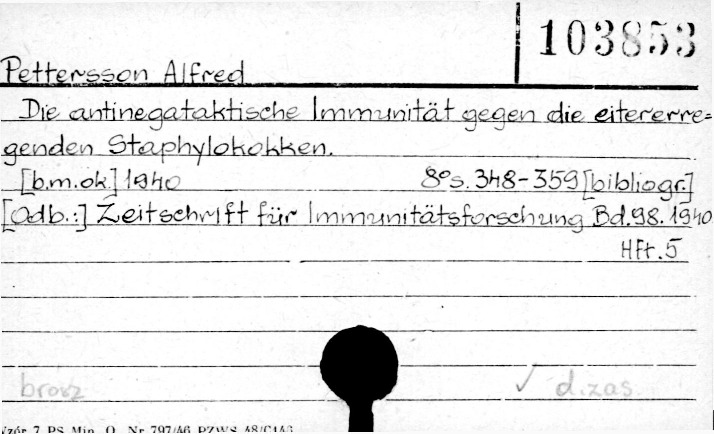 103853
Pettersson Alfred
Die antinegataktische Immunität gegen die eitererre=
genden Staphylokokken.
[b.m.ok.] 1940 8°s. 348-359 [bibliogr.]
[Odb.:] Zeitschrift für Immunitätsforschung Bd. 98. 1940
Hft. 5
brosz ✓ d.zas.
Wzór 7 PS Min. O. Nr 797/46 PZWS